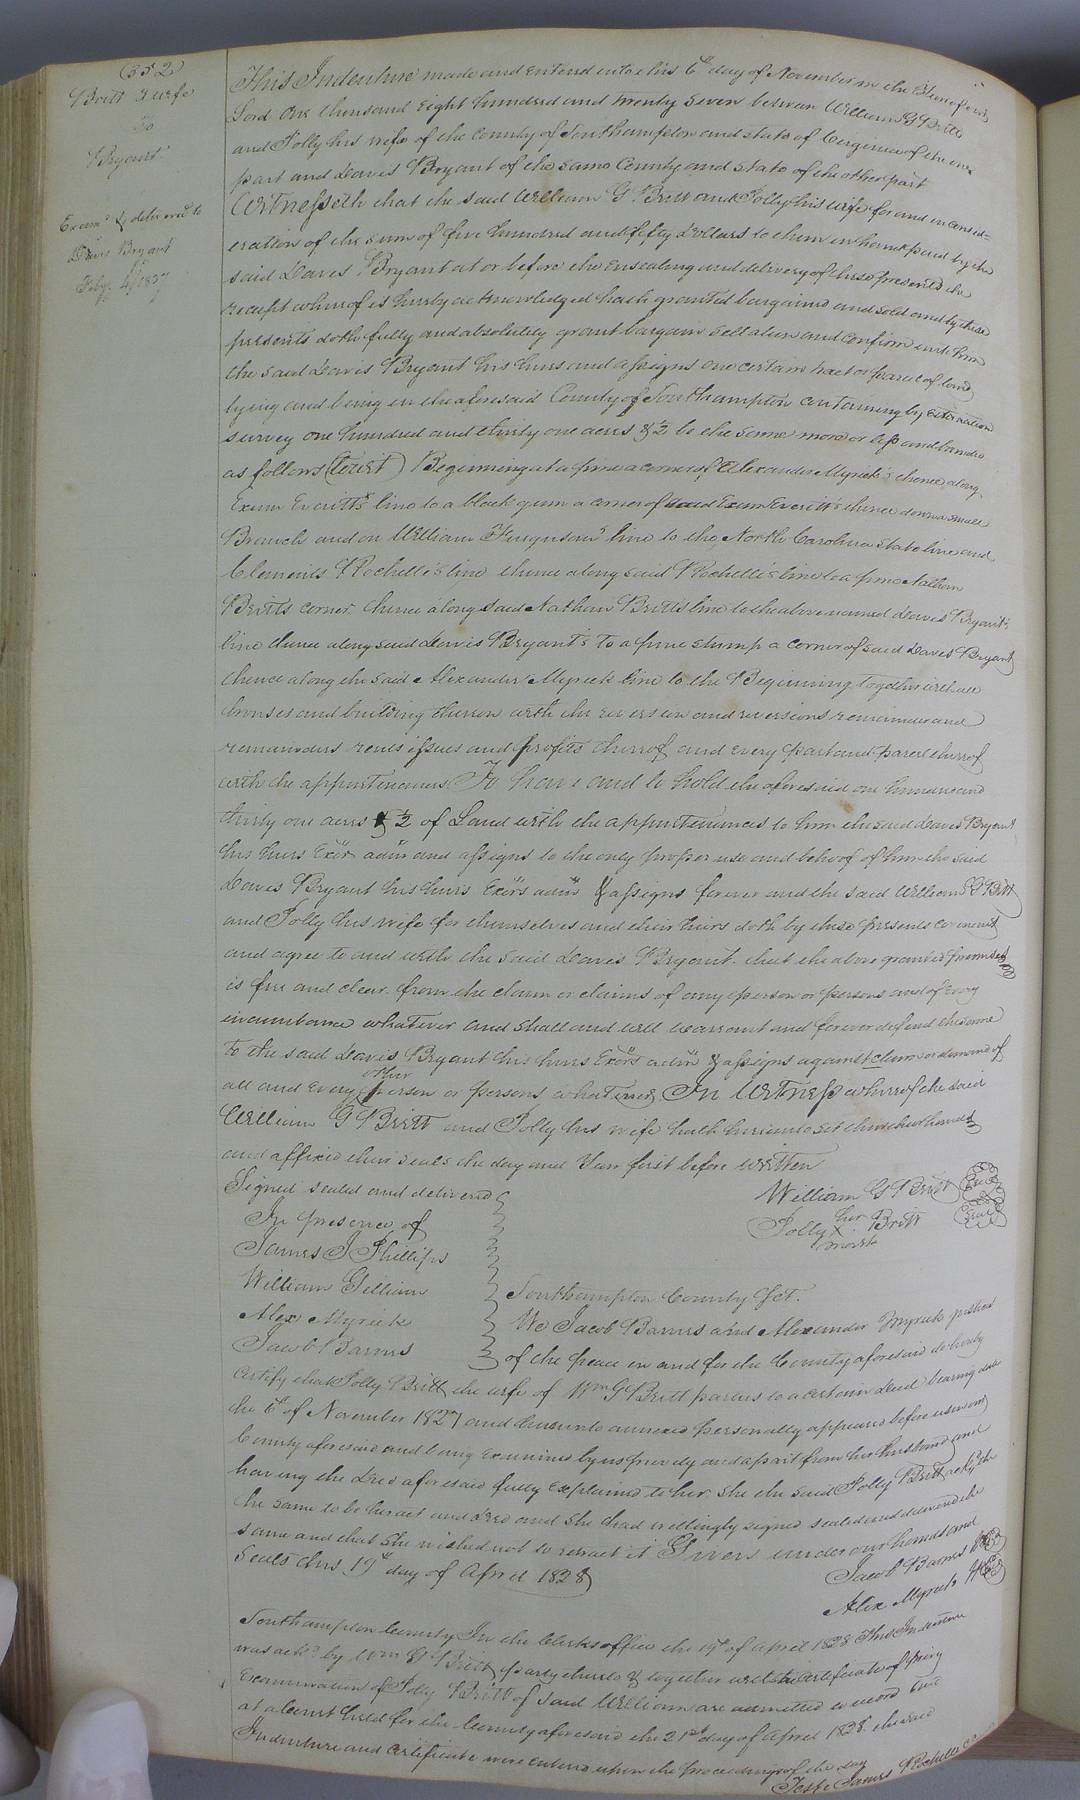 (352)
Britt & wife
To
Bryant
Examd & delivered to
Davis Bryant
Feby 4th 1837
This Indenture made and entered into this 6th day of November in the year of our
Lord One thousand Eight hundred and twenty Seven between William G Britt
and Polly his wife of the County of Southampton and state of Virginia of the one
part and Davis Bryant of the same County and State of the other part
Witnesseth that the said William G Britt and Polly his wife for and in consid=
eration of the sum of five hundred and fifty dollars to them in hand paid by the
said Davis Bryant at or before the ensealing and delivery of these presents the
receipt whereof is hereby acknowledged hath granted bargained and sold and by these
presents doth fully and absolutely grant bargain sell alien and confirm unto him
the said Davis Bryant his heirs and assigns one certain tract or parcel of land
lying and being in the aforesaid County of Southampton containing by estimation
survey one hundred and thirty one acres & ½ be the same more or less and bounded
as follows (towit) Beginning at a pine a corner of Alexander Myrick's thence along
Exum Everitt's line to a black gum a corner of said Exum Everitt's thence down a small
Branch and on William Furguson's line to the North Carolina State line and
Clements Rochelle's line thence along said Rochelle's line to a pine Nathan
Britts corner thence along said Nathan Britts line to the above named Davis Bryant's
line thence along said Davis Bryant's to a pine stump a corner of said Davis Bryant
thence along the said Alexander Myrick line to the Beginning together with all
houses and building thereon with the reversion and reversions remainder and
remainders rents issues and profits thereof and every part and parcel thereof
with the appurtenances To have and to hold the aforesaid one hundred and
thirty one acres & ½ of Land with the appurtenances to him the said Davis Bryant
his heirs Exors admrs and assigns to the only proper use and behoof of him the said
Davis Bryant his heirs Exors admrs & assigns forever and the said William G Britt
and Polly his wife for themselves and their heirs doth by these presents covenant
and agree to and with the said Davis Bryant that the above granted premises
is free and clear from the claim or claims of any person or persons and of every
incumbrance whatever and shall and will warrant and forever defend the same
To the said Davis Bryant his heirs Exors admrs & assigns against claim or demand of
all and every other person or persons whatever In Witness whereof the said
William G Britt and Polly his wife hath hereunto set their hands
and affixed their seals the day and Year first before written
William G Britt (Seal)
Polly her X mark Britt (Seal)
Signed sealed and delivered
In presence of
James J Phillips
William Gilliam
Alex Myrick
Jacob Barnes
Southampton County Sct.
We Jacob Barnes and Alexander Myrick justices
of the peace in and for the County aforesaid do hereby
certify that Polly Britt the wife of Wm G Britt parties to a certain deed bearing date
the 6th of November 1827 and hereunto annexed personally appeared before us in our
County aforesaid and being examined by us privily and apart from her husband and
having the deed aforesaid fully explained to her she the said Polly Britt ackd
the same to be her act and deed and she had willingly signed sealed and delivered the
same and that she wished not to retract it Given under our hands and
Seals this 19th day of April 1828
Jacob Barnes
Alex Myrick
Southampton County In the Clerks office the 19th of April 1828 This Indenture
was ackd by Wm G Britt party thereto & together with the certificate of privy
Examination of Polly Britt of said William are admitted to record And
at a Court held for the County aforesaid the 21st day of April 1828 the said
Indenture and certificate were entered upon the proceedings of the day
Teste James Rochelle